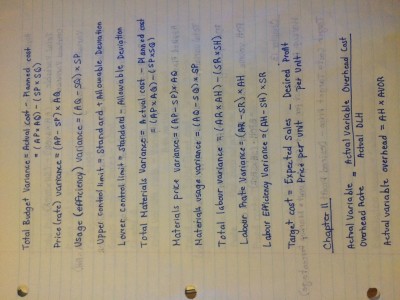 Total Budget Variance = Actual Cost - Planned cost
= (AP x AQ) - (SP x SQ)
Price (rate) variance = (AP - SP) x AQ
Usage (efficiency) Variance = (AQ - SQ) x SP
Upper control limit = Standard + Allowable Deviation
Lower control limit = Standard - Allowable Deviation
Total Materials Variance = Actual cost - Planned cost
= (AP x AQ) - (SP x SQ)
Materials price variance = (AP - SP) x AQ
Materials usage variance = (AQ - SQ) x SP
Total labour variance = (AR x AH) - (SR x SH)
Labour Rate Variance = (AR - SR) x AH
Labour Efficiency Variance = (AH - SH) x SR
Target cost = Expected Sales - Desired Profit
Price per unit per Unit
Chapter 11
Actual Variable = Actual Variable Overhead Cost
Overhead Rate Actual DLH
Actual variable overhead = AH x AVOR